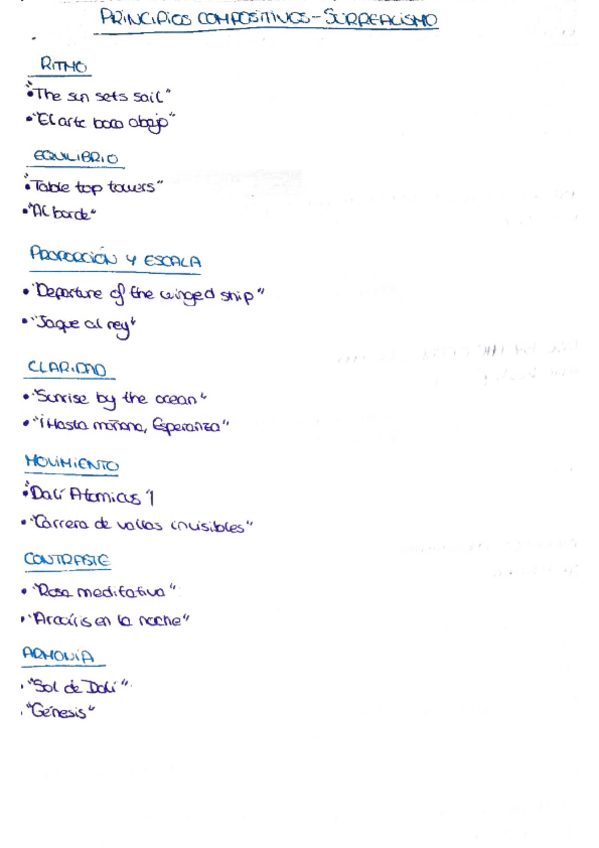 PRINCIPIOS COMPOSITIVOS - SURREALISMO
RITMO
• "The sun sets sail"
• "El arte boca abajo"
EQUILIBRIO
• "Table top towers"
• "Al borde"
PROPORCIÓN Y ESCALA
• "Departure of the winged ship"
• "Jaque al rey"
CLARIDAD
• "Sunrise by the ocean"
• "¡Hasta mañana, Esperanza"
MOVIMIENTO
• "Dalí Atomicus"
• "Carrera de vallas invisibles"
CONTRASTE
• "Rosa meditativa"
• "Arcoíris en la noche"
ARMONÍA
• "Sol de Dalí"
• "Génesis"